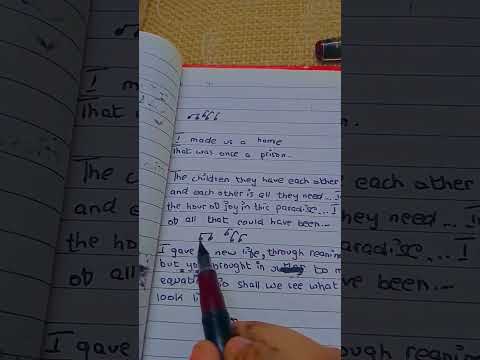 I made us a home
that was once a prison..
The children they have each other
and each other is all they need... I
the hour of joy in this paradise... I
of all that could have been...
I gave new life, through reanim
but you brought in to m
equation so shall we see what
look li